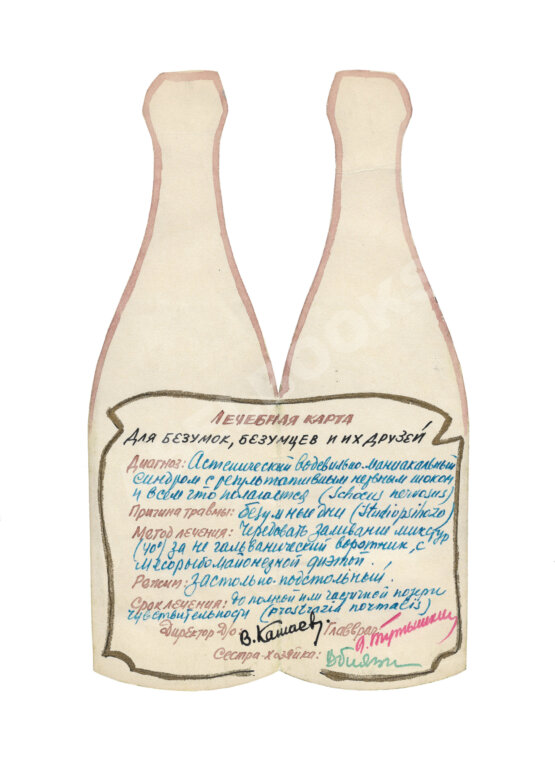 Лечебная карта
Для безумок, безумцев и их друзей
Диагноз: Астенический водевильно-маниакальный
синдром с результативным нервным шоком
и всем что полагается (Schocus nervosus)
Причина травмы: безумные дни (Studiopsihozo)
Метод лечения: Чередовать заливание микстур
(40°) за не гальванический воротник, с
мясорыбомайонезной диэтой.
Режим: Застольно-подстольный!
Срок лечения: до полной или частичной потери
чувствительности (prostrazia normalis)
Директор д/о В. Катаев. Главврач А. Тутышкин
Сестра-хозяйка: